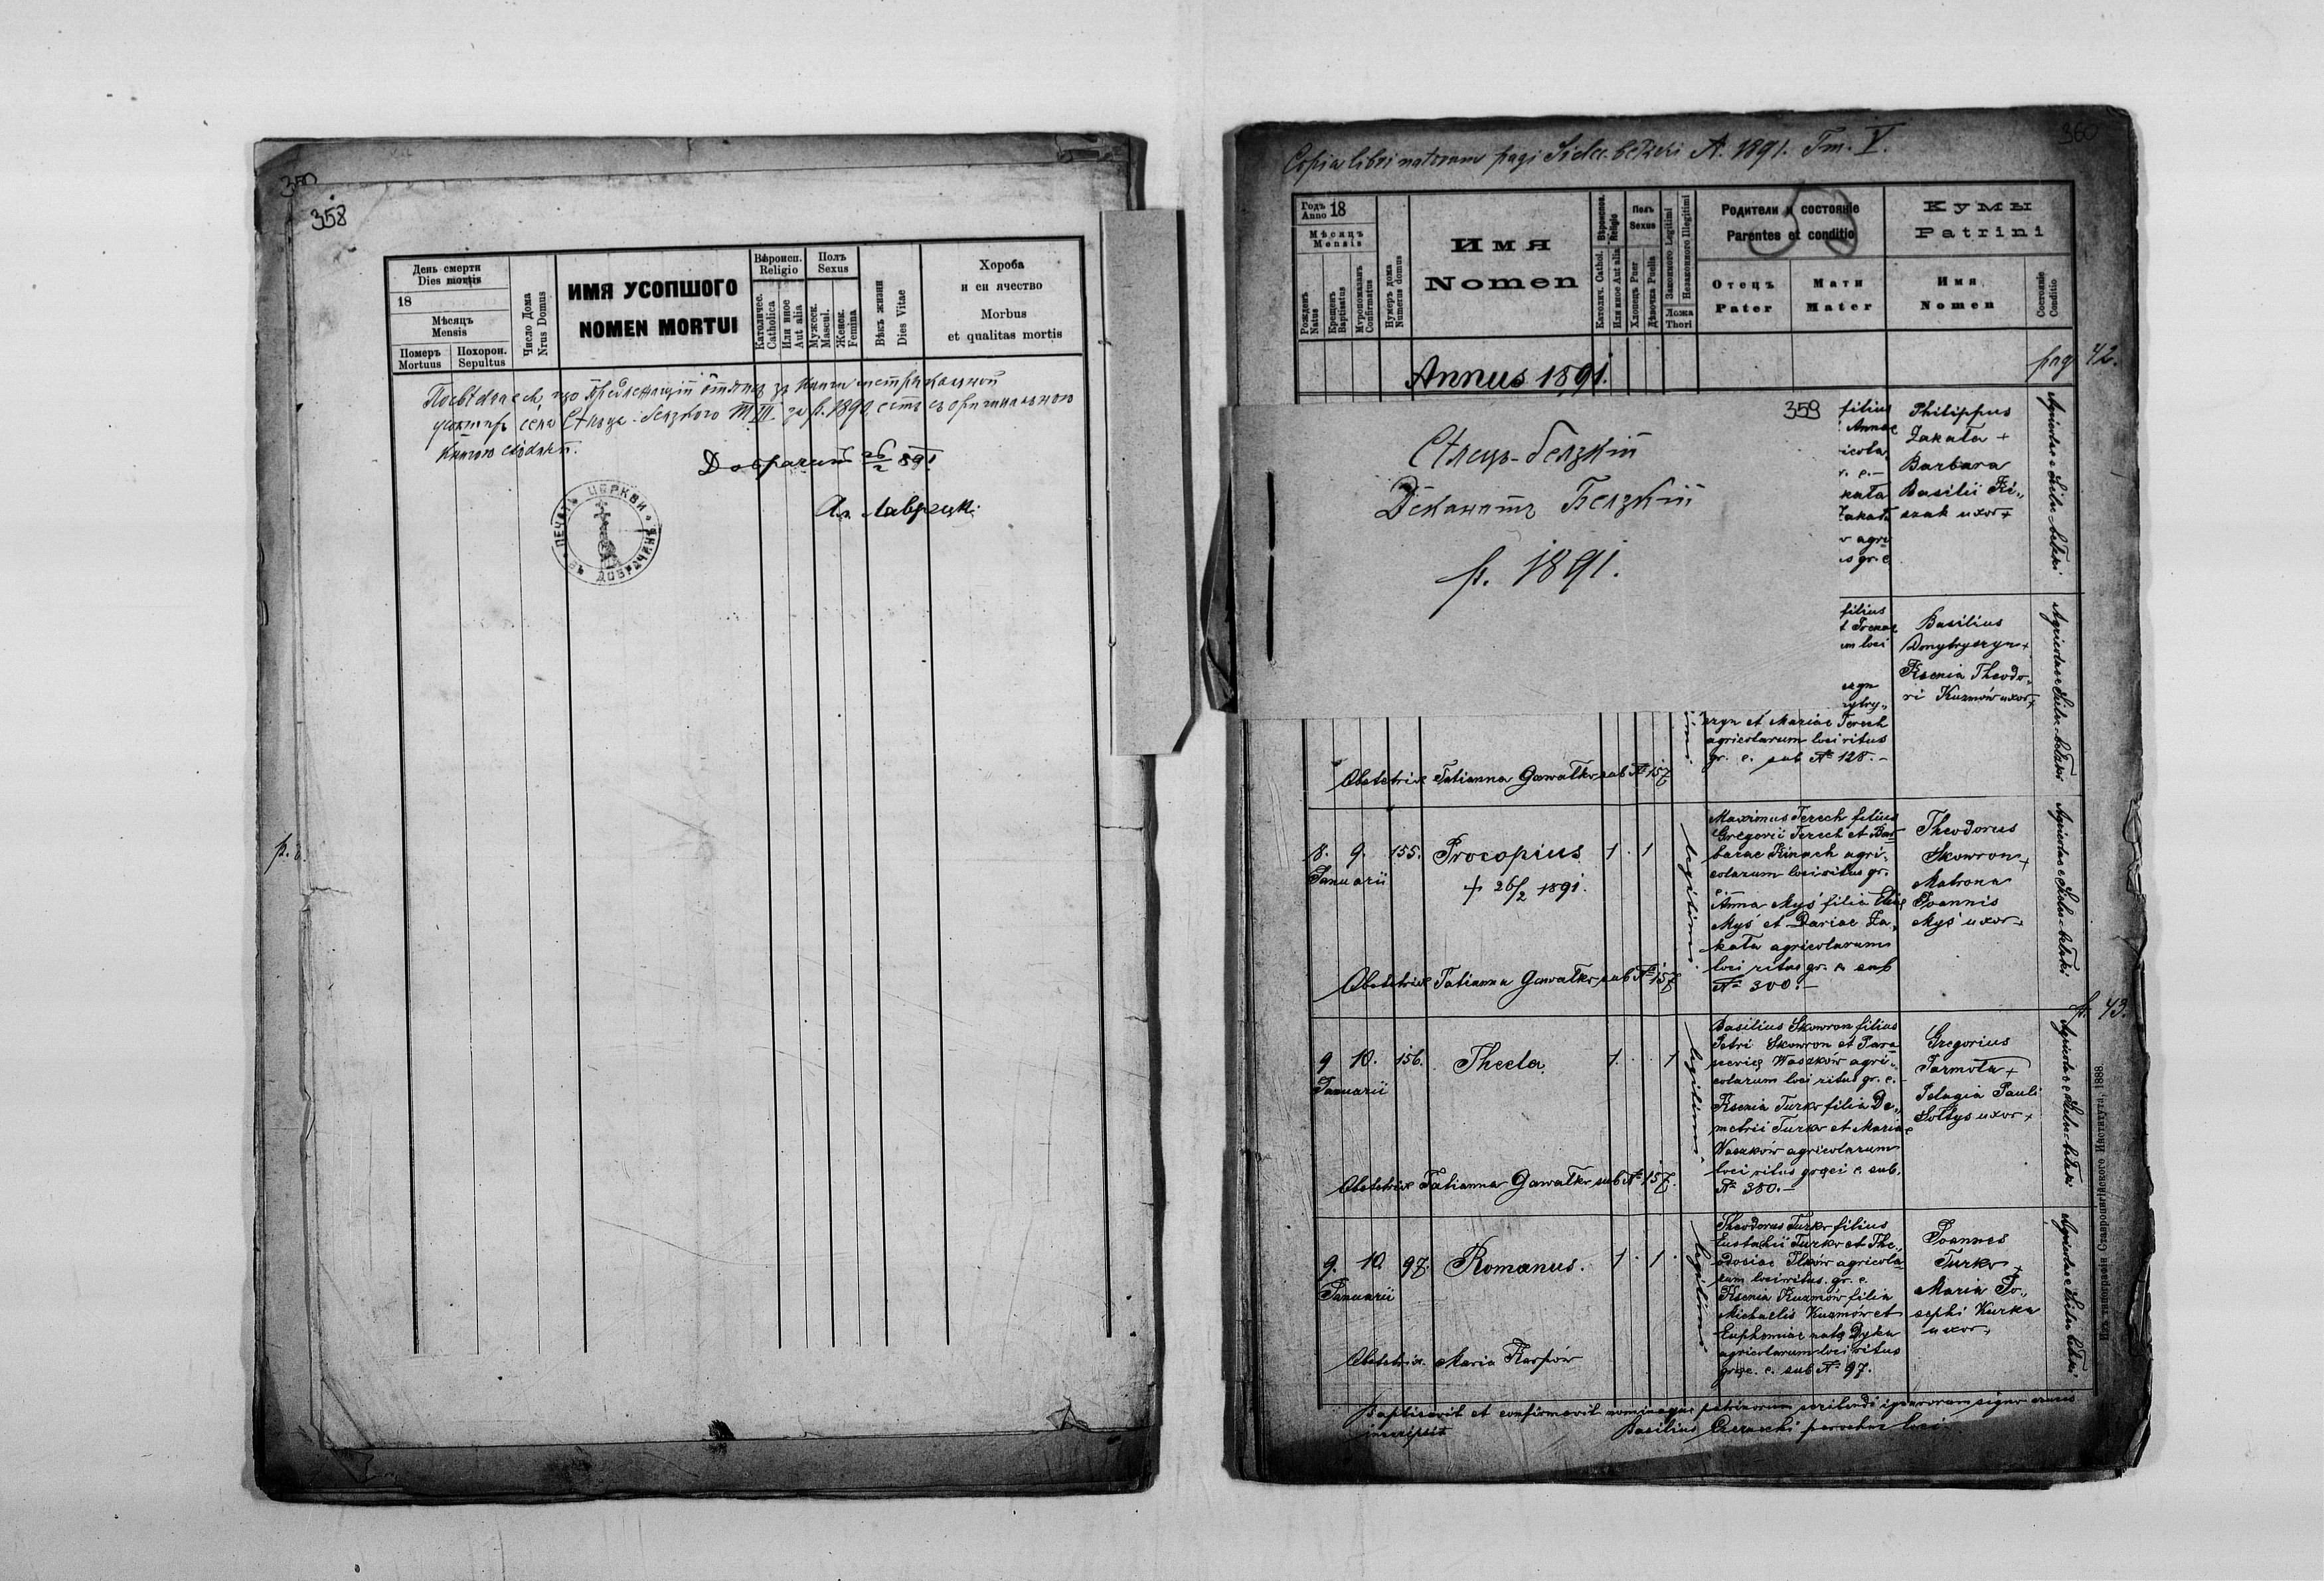 350
358
День смерти
Dies mortis
18
Мѣсяцъ
Mensis
Померъ
Mortuus
Похорон.
Sepultus
Число Дома
Nrus Domus
ИМЯ УСОПШОГО
NOMEN MORTUI
Вѣроисп.
Religio
Католичес.
Catholica
Или иное
Aut alia
Полъ
Sexus
Мужеск.
Mascul.
Женск.
Femina
Вѣкъ жизни
Dies Vitae
Хороба
и еи ячество
Morbus
et qualitas mortis
що предлежащій
села Сѣлца-белзкого III за р. 1890 есть съ оригинальною
книгою
26/2 891
ПЕЧАТЬ ЦЕРКВИ ВЪ ДОБРАЧИНѢ
360
Copia libri natorum pagi Sielec-bełzki A. 1891. Tm. V.
Годъ
Anno 18
Мѣсяцъ
Mensis
Рожденъ
Natus
Крещенъ
Baptisatus
Мѵропомазанъ
Confirmatus
Нумеръ дома
Numerus domus
Имя
Nomen
Вѣроиспов.
Religio
Католич. Cathol.
Или иное Aut alia
Полъ
Sexus
Хлопецъ Puer
Дѣвочка Puella
Законного Legitimi
Незаконного Illegitimi
Ложа
Thori
Родители и состояніе
Parentes et conditio
Отецъ
Pater
Мати
Mater
Кумы
Patrini
Имя
Nomen
Состояніе
Conditio
Annus 1891.
pag 42.
359
Сѣлецъ-белзкій
Деканатъ Белзкій
р. 1891.
filius
Annae
icola
r. c. –
kała
Zakała
r agri
s gr. c.
Philippus
Zakała +
Barbara
Basilii Ki„
szak uxor +
Agricolae Siele-bełzki
filius
t Irenae
um loci
szyn
ytry„
szyn et Mariae Terech
agricolarum loci ritus
gr. c. sub № 128. –
Basilius
Dmytryszyn +
Ksenia Theodo„
ri Kuzmów uxor +
Obstetrix Tatianna Gawałko sub № 157
8. 9. 155. Procopius 1 . 1
Januarii
+ 26/2 1891.
legitimi
Maximus Terech filius
Gregorii Terech et Bar„
barae Kinach agri„
colarum loci ritus gr.
c.
Anna Myś filia Eliae
Myś et Dariae Za„
kała agricolarum
loci ritus gr. c. sub
№ 300. –
Theodorus
Skowron +
Matrona
Joannis
Myś uxor +
Obstetrix Tatianna Gawałko sub № 157
p. 43.
9 10. 156. Thecla. 1. . 1
Januarii
legitimi
Basilius Skowron filius
Petri Skowron et Para„
scevię Waszków agri„
colarum loci ritus gr. c. –
Ksenia Turko filia De„
metrii Turko et Mariae
Waszków agricolarum
loci ritus graeci c. sub.
№ 380. –
Gregorius
Jarmoła +
Pelagia Pauli
Sołtys uxor +
Obstetrix Tatianna Gawałko sub № 157.
9. 10. 97. Romanus. 1 . 1 .
Januarii
legitimi
Theodorus Turko filius
Eustachii Turko et The„
odosiae Ilków agricola„
rum loci ritus. gr. c.
Ksenia Kuzmów filia
Michaelis Kuzmów et
Euphemiae natę Dyka
agricolarum loci ritus
graec. c. sub № 97.
Joannes
Turko +
Maria Jo„
sephi Kurka
uxor +
Obstetrix. Maria Karpów
Baptisavit et confirmavit nominaque patrinorum scribendi ignarorum signo crucis
inscripsit Basilius parochus loci.
Изъ типографіи Ставропигійского Института, 1888.